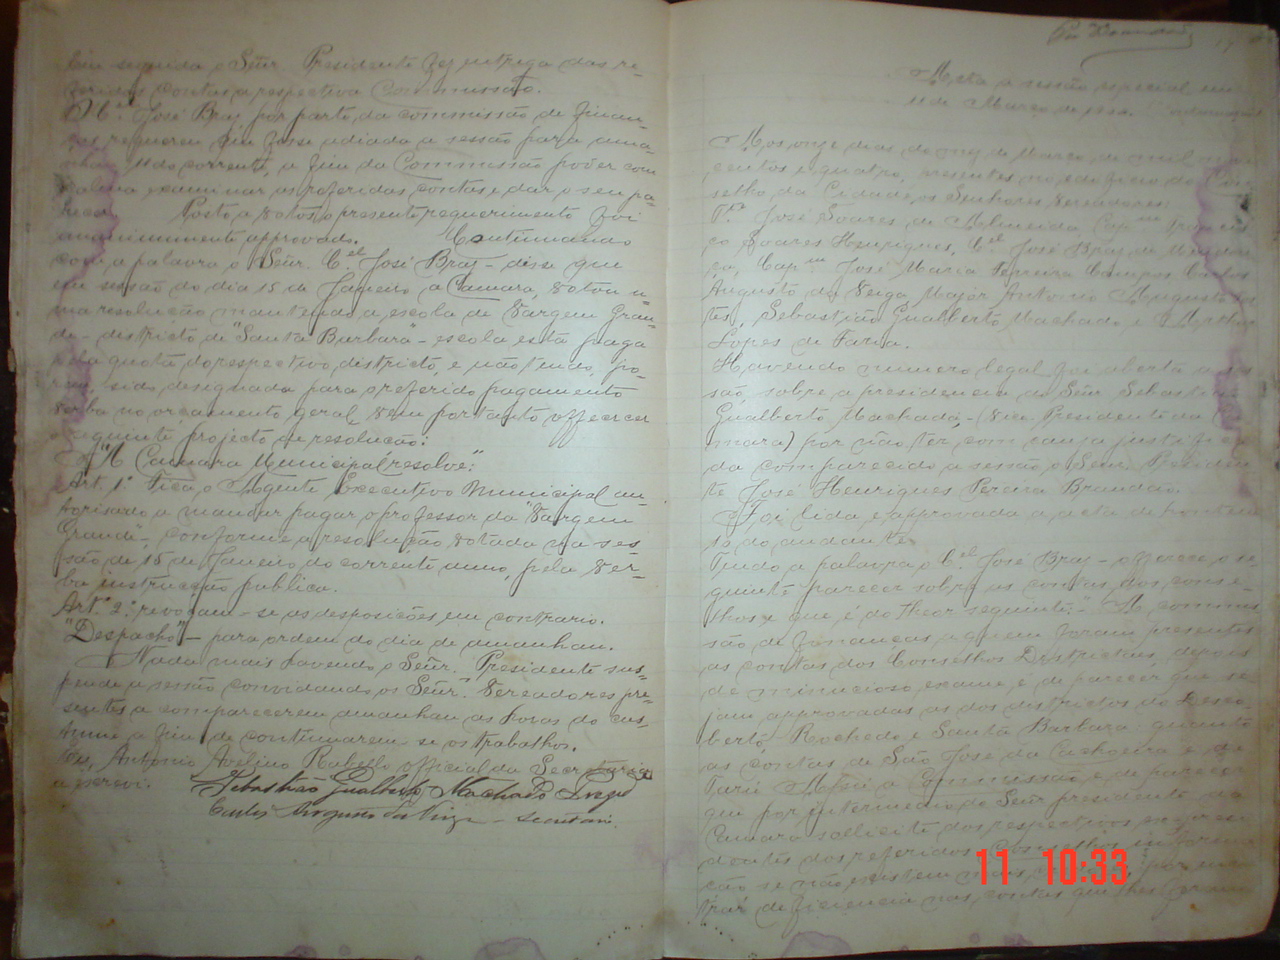 Em seguida o Sñr. Presidente fez entrega das re-
feridas contas a respectiva Commissão.
O Cel. José Braz por parte da commissão de finan-
ças requereu que fosse adiada a sessão para ama-
nhan, 11 do corrente, a fim da Commissão poder com
calma examinar as referidas contas e dar o seu pa-
recer. Posto a votos o presente requerimento foi
unanimimente approvado. Continuando
com a palavra o Señr. Cel. José Braz - disse que
em sessão do dia 15 de Janeiro a Camara, votou u-
ma resolução mantendo a escola de Vargem Gran-
de - districto de "Santa Barbara" - escola está paga
pela quota do respectivo districto, e não tendo, po-
rem, sido designada para o referido pagamento
verba no orçamento geral, vem portanto offerecer
o seguinte projecto de resolução:
"A Camara Municipal resolve":
Art. 1º Fica o Agente Executivo Municipal au-
torisado a mandar pagar o professor da "Vargem
Grande", conforme a resolução votada na ses-
são de 15 de Janeiro do corrente anno, pela ver-
ba instrucção publica.
Art. 2º revogam-se as desposições em contrario.
"Despacho" - para ordem do dia de amanhan.
Nada mais havendo o Señr. Presidente sus-
pende a sessão convidando os Señr.es Vereadores pre-
sentes a comparecerem amanhan as horas do cus-
tume a fim de continuarem-se os trabalhos.
Eu, Antonio Avelino Rabello official da Secretaria
a escrevi.
Sebastião Gualberto Machado
Carlos Augusto da Veiga - Secretario.
Acta a sessão especial em
11 de Março de
Aos onze dias do mez de Março de mil nove
centos e quatro, presentes no edificio do Con-
selho da Cidade, os Senhores Vereadores:
José Soares de Almeida, Capm Francis
co Soares Henriques, Cel. José Braz de Mendon
ça, Capm José Maria Ferreira Campos, Carlos
Augusto da Veiga, Major Antonio Augusto
Sebastião Gualberto Machado e
Lopes de Faria.
Havendo numero legal foi aberta a ses
são, sobre a presidencia do Señr Sebastião
Gualberto Machado, - (Vice Presidente da Ca
mara) por não ter com causa justifica
da comparecido a sessão o Senr. Presiden
te José Henriques Pereira Brandão.
Foi lida e approvada a acta de hontem
10 do andante.
Tendo a palavra o Cel. José Braz - offerece o se-
guinte parecer sobre as contas dos conse-
lhos e que é do theor seguinte: - "A commis
são de finanças a quem foram presentes
as contas dos Conselhos Districtaes, depois
de minucioso exame é de parecer que se-
jam approvadas as dos districtos do Desco-
berto, Rochedo e Santa Barbara: quanto
as contas de São José da Cachoeira e de
a Commissão é de parecer
que por intermedio do Señr presidente da
Camara sollicite dos respectivos
dentes dos referidos Conselhos informa
ção se não existem mais por
trar deficiencia nas contas que lhes foram
11 10:33